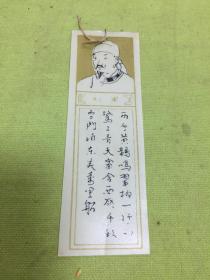 两个黄鹂鸣翠柳一行白
鹭上青天窗含西岭千秋
雪门泊东吴萬里船